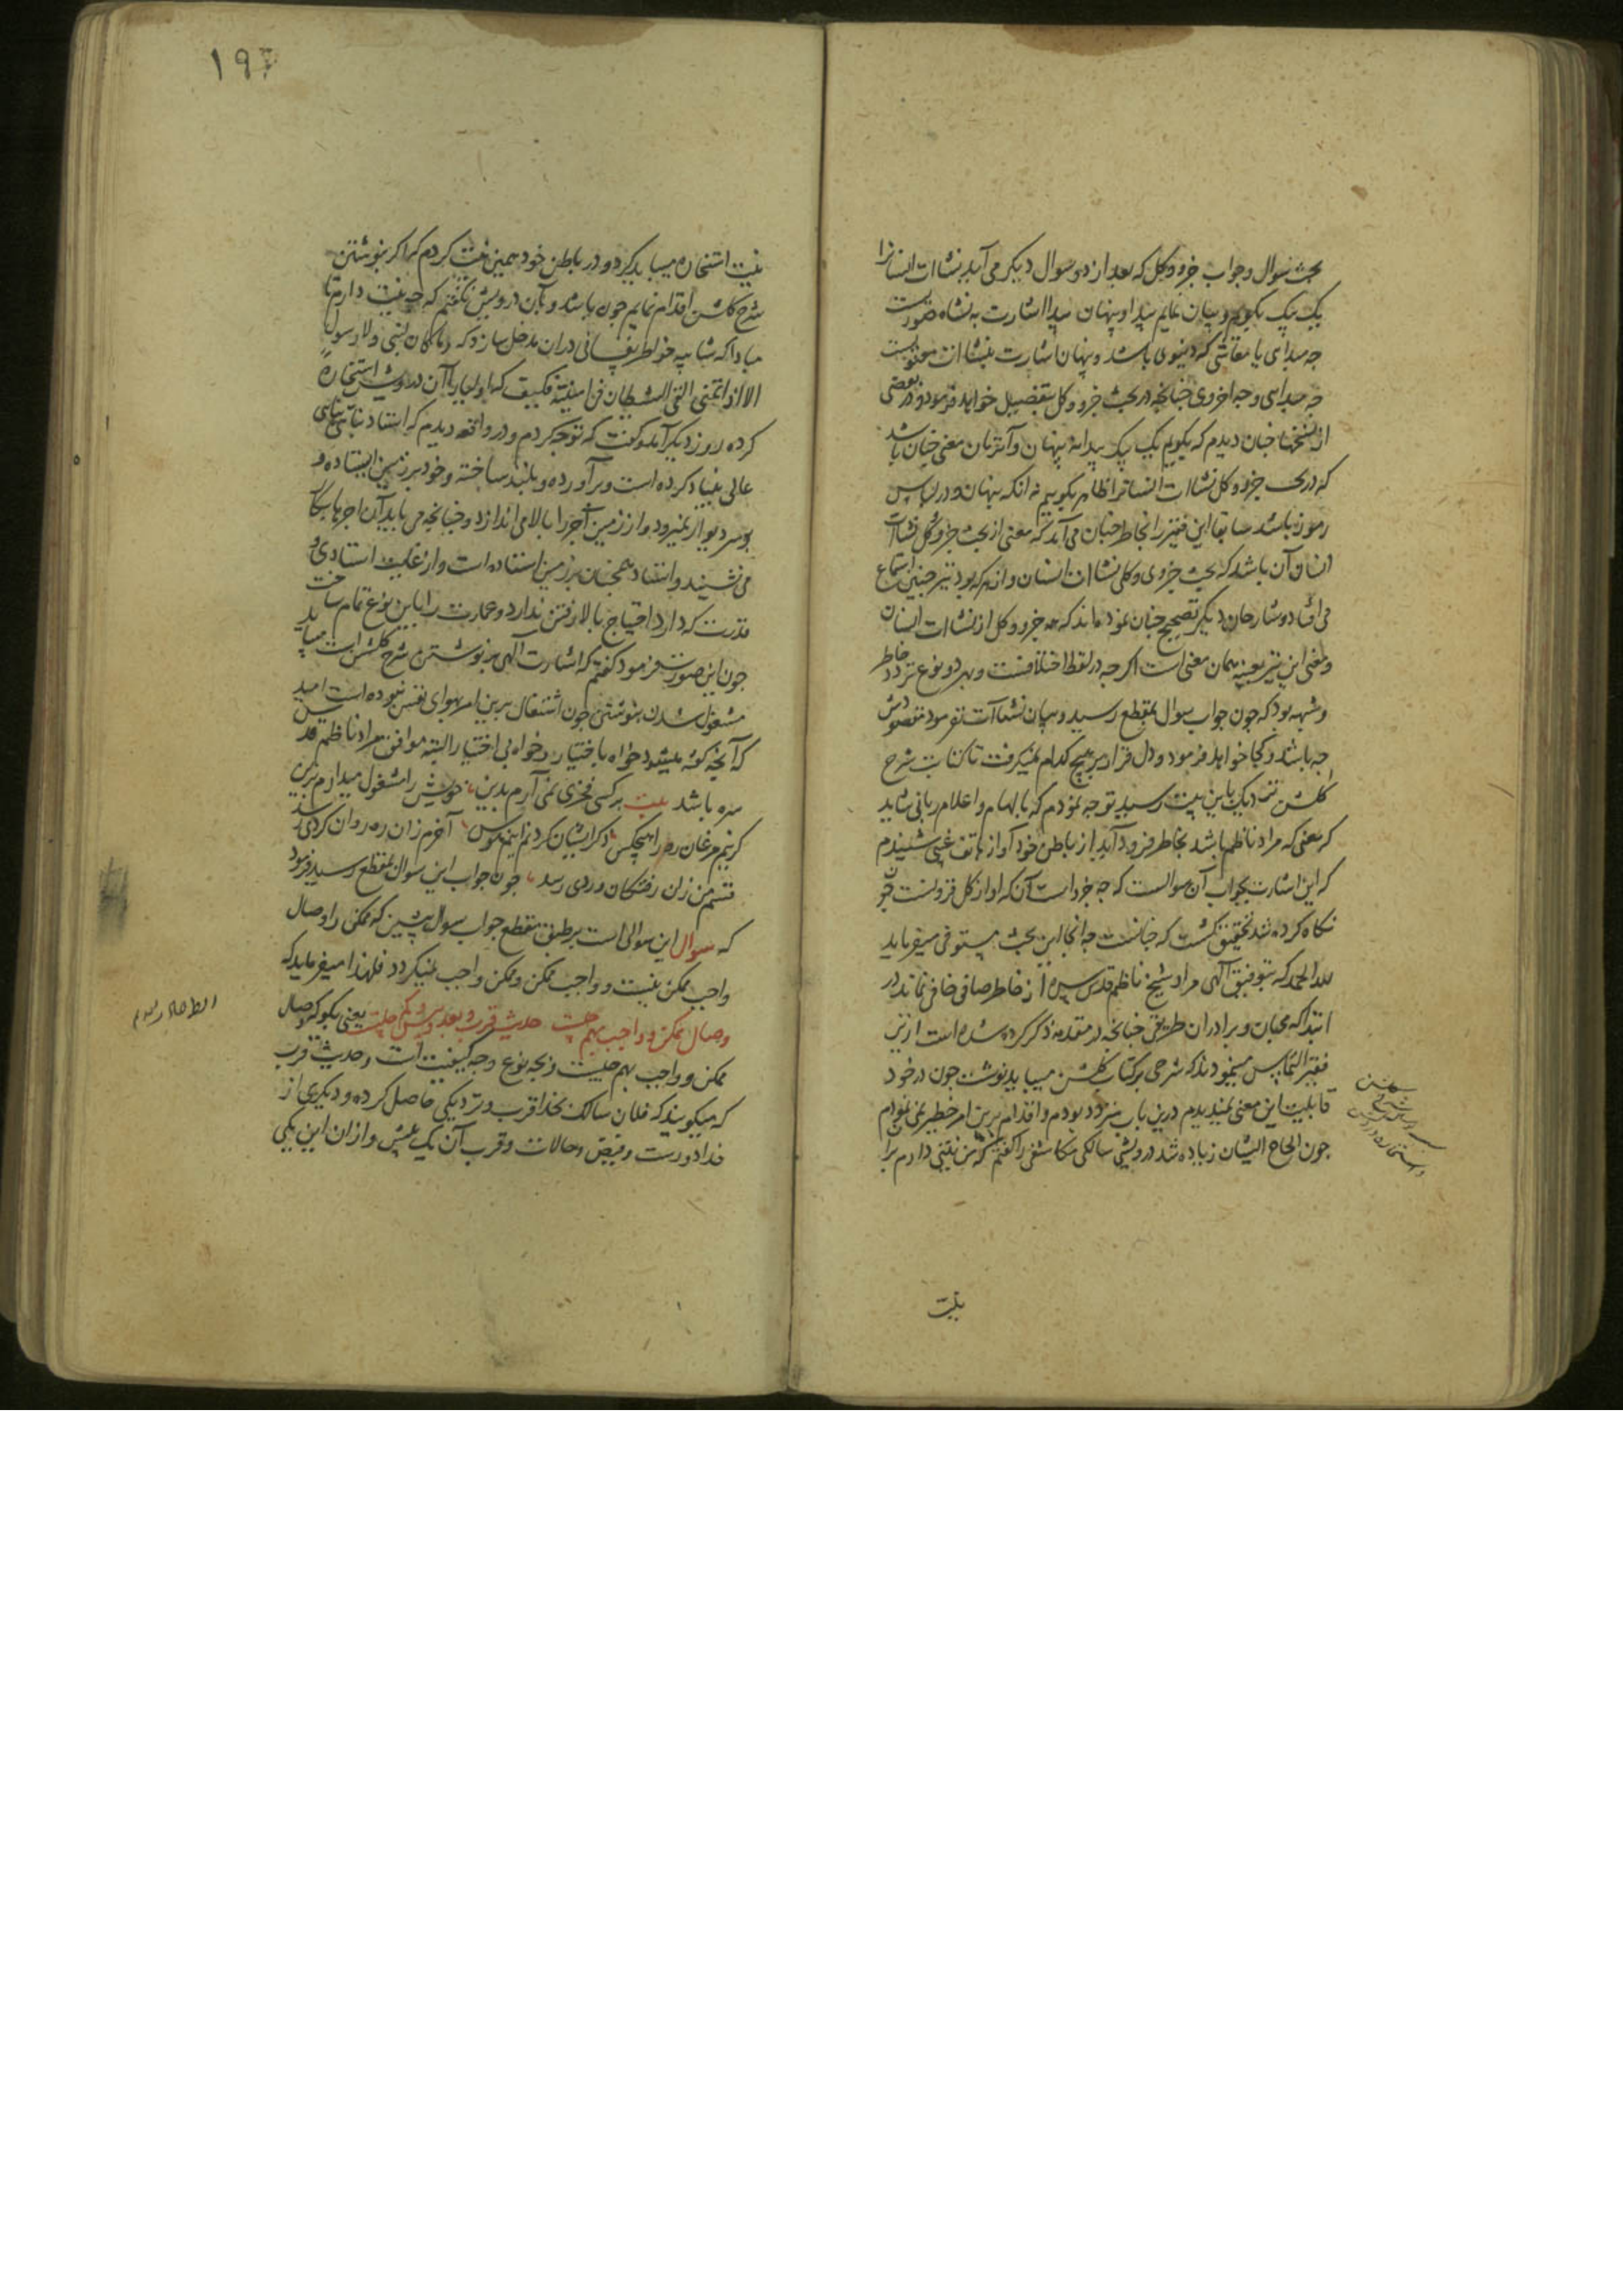 بحث سوال و جواب جزو و کل که بعد از دو سوال دیگر می آید نشاات انسانرا
یک بیک بگویم و بیان نمایم پیدا و پنهان پیدا اشارت به نشاه صورتیست
چه مبدای یا معاشی که دنیوی باشد و پنهان اشارت بنشاات معنویست
چه مبدای و چه اخروی چنانچه در بحث جزو و کل بتفصیل خواهد فرمود و در بعضی
از نسخها چنان دیدم که بگویم یک بیک پیدا نه پنهان و آنزمان معنی چنان باشد
که در بحث جزو و کل نشاات انسانرا ظاهر بگوییم نه آنکه پنهان و در لباس
رموز باشد سابقا این فقیر را بخاطر چنان می آمد که معنی از بحث جزو و کل نشاات
انسان آن باشد که بحث جزوی و کلی نشاات انسان و از هر که بود نیز چنین استماع
می افتاد و شارحان دیگر تصحیح چنان نموده اند که همه جزو و کل از نشاات انسان
و معنی این نیز بعینه همان معنی است اگر چه در لفظ اختلافست و بهر دو نوع تردد خاطر
و شبهه بود که چون جواب سوال بمقطع رسید و بیان نشاات نفرمود مقصودش
چه باشد و کجا خواهد فرمود و دل قرار بر هیچ کدام نمیگرفت تا کتابت شرح
گلشن نزدیک باین بیت رسید توجه نمودم که بالهام و اعلام ربانی شاید
که معنی که مراد ناظم باشد بخاطر فرود آید از باطن خود آواز هاتف غیبی شنیدم
که این اشارت بجواب آن سوالست که چه جزو است آن که او از کل فزونست چون
نگاه کرده شد تحقیق گشت که چنانست چه آنجا این بحث مستوفی میفرماید
لله الحمد که بتوفیق الهی مراد شیخ ناظم قدس سره از خاطر صافی خافی نماند در
ابتدا که محبان و برادران طریق چنانچه در مقدمه ذکر کرده شده است ازین
فقیر التماس مینمودند که شرحی بر کتاب گلشن میباید نوشت چون در خود
قابلیت این معنی نمیدیدم درین باب متردد بودم و اقدام برین امر خطیر نمی نمودم
چون الحاح ایشان زیاده شد درویشی سالکی مکاشفی را گفتم که من نیتی دارم برا
نیت
۱۹۳
نیت استخاره میباید کرد و در باطن خود همین نیت کردم که اگر بنوشتن
شرح گلشن اقدام نمایم چون باشد و بآن درویش نگفتم که چه نیت دارم تا
مبادا که شایبه خواطر نفسانی در آن مدخل سازد که و ما کان لنبی و لا رسول
الا اذا تمنی القی الشیطان فی امنیته فکیف که اولیا را آن درویش استخاره
کرده روز دیگر آمد و گفت که توجه کردم و در واقعه دیدم که استاد بنا بنای
عالی بنیاد کرده است و برآورده و بلند ساخته و خود بر زمین ایستاده و
بر سر دیوار نمیرود و از زمین آجر را بالا می اندازد و چنانچه می باید آن اجرها بکار
می نشیند و استاد همچنان بر زمین استاده است و از غایت استادی و
قدرت که دارد احتیاج بالا رفتن ندارد و عمارت را باین نوع تمام ساخت
چون این صورت فرمود گفتم که اشارت الهی بر نوشتن شرح گلشن است میباید
مشغول شدن بنوشتن چون اشتغال برین امر بهوای نفس نبوده است امید
که آنچه گفته میشود خواه باختیار و خواه بی اختیار البته موافق مراد ناظم قدس
سره باشد بیت بر کسی فخری نمی آرم بدین خویش را مشغول میدارم برین
گر نیم مرغان ره را هیچکس ذکر ایشان کرده ام اینم نه بس آخرم زان ره روان گردی رسد
قسم من زان رفتگان دردی رسد چون جواب این سوال بمقطع رسید فرمود
که سوال این سوالی است بر طبق مقطع جواب سوال پیشین که ممکن را وصال
واجب ممکن نیست و واجب ممکن و ممکن واجب نمیگردد فلهذا میفرماید که
وصال ممکن و واجب بهم چیست حدیث قرب و بعد و بیش و کم چیست یعنی بگو که وصال
ممکن و واجب بهم چیست و بچه نوع و چه کیفیت است و حدیث قرب
که میگویند که فلان سالک بخدا قرب و نزدیکی حاصل کرده و دیگری از
خدا دورست و فیض و حالات و قرب آن یک بیش و از آن این یکی